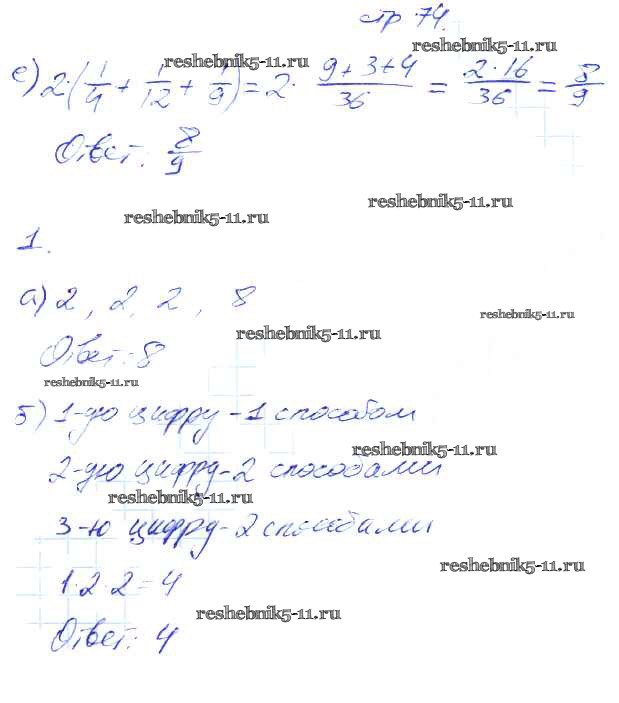 стр 74.
reshebnik5-11.ru
reshebnik5-11.ru
е) 2·(1/4 + 1/12 + 1/9) = 2· (9+3+4)/36 = (2·16)/36 = 8/9
Ответ: 8/9
reshebnik5-11.ru
reshebnik5-11.ru
1.
а) 2, 2, 2, 8
reshebnik5-11.ru
reshebnik5-11.ru
Ответ: 8
reshebnik5-11.ru
б) 1-ую цифру - 1 способом
reshebnik5-11.ru
2-ую цифру - 2 способами
reshebnik5-11.ru
3-ю цифру - 2 способами
reshebnik5-11.ru
1·2·2=4
reshebnik5-11.ru
Ответ: 4